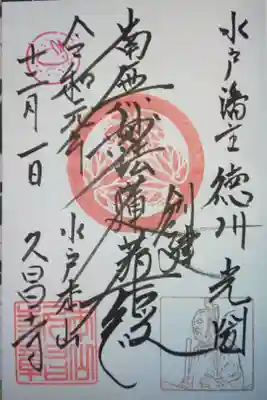 水戸藩主 徳川 光圀
創建
南無妙法蓮華経
水戸本山
久昌寺
令和元年
十二月一日